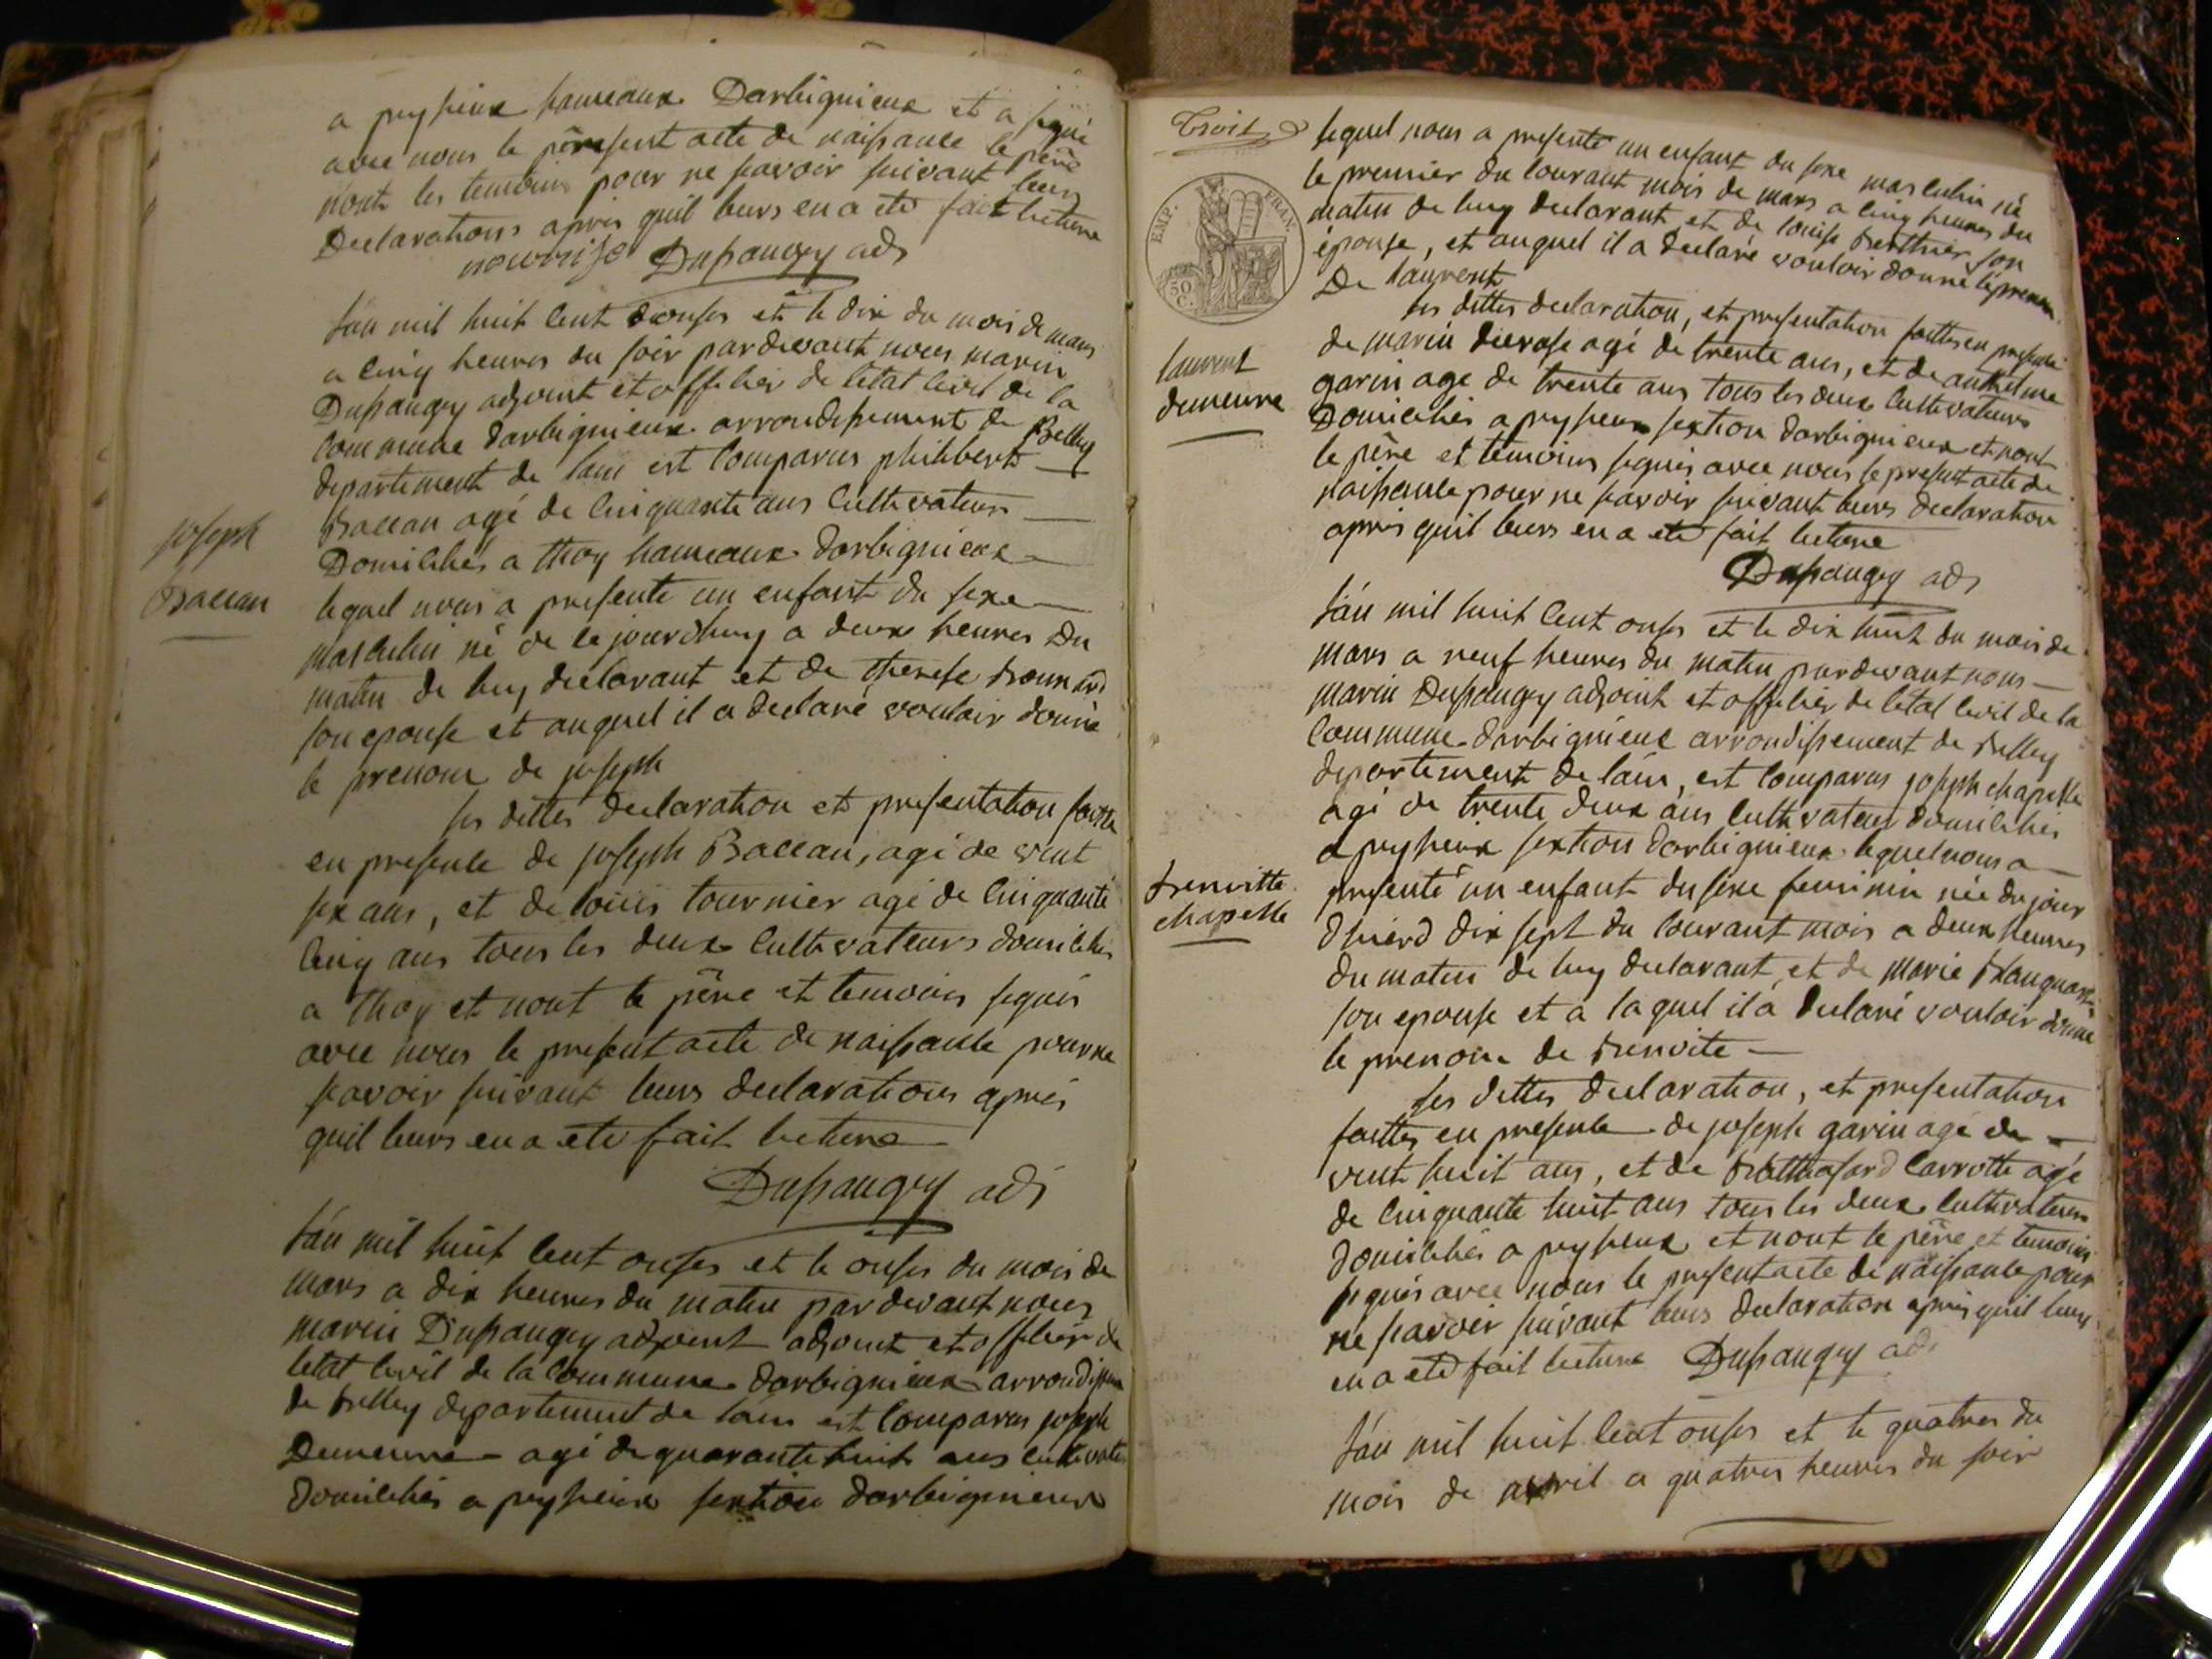 a peyzieux hameaux Darbignieux et a signé
avec nous le present acte de naissance le père
nont les temoins pour ne savoir suivant leurs
Declarations apres quil leurs en a eté fait lecture
Dupaugey adj
lán mil huit cent onses et le dix du mois de mars
a cinq heures du soir pardevant nous marin
Dupaugey adjoint et officier de létat civil de la
commune darbignieux arrondissement de Belley
departement de lain est comparus philibert
Baccan agé de cinquante ans cultivateur
Joseph
Baccan
Domiciliés a thoy hameaux darbignieux
lequel nous a presenté un enfant du sexe
masculin né de ce jourdhuy a deux heures Du
matin de luy declarant et de therese
son epouse et auquel il a declaré vouloir donné
le prenom de joseph
les dittes declaration et presentation faitte
en presence de joseph Baccan, agé de vint
six ans, et de louis tournier agé de cinquante
cinq ans tous les deux cultivateurs domiciliés
a thoy et nont le père et temoins signés
avec nous le present acte de naissance pour ne
savoir suivant leurs declarations aprés
quil leurs en a eté fait lecture
Dupaugey adj
lán mil huit cent onses et le onses du mois de
mars a dix heures du matin pardevant nous
marin Dupaugey adjoint adjoint et officier de
letat civil de la commune darbignieux arrondissem
de belley departement de lain est comparus joseph
Dumeurre agé de quarante huit ans cultivateu
domiciliés a peyzieux section darbignieux
Troit
lequel nous a presenté un enfant du sexe masculin né
le premier du courant mois de mars a cinq heures du
matin de luy declarant et de louise berthier son
épouse, et auquel il a declaré vouloir donné le prenom
De laurent
EMP. FRAN.
50
C.
laurent
dumeurre
les dittes declaration, et presentation faittes en presence
de marin agé de trente ans, et de anthelme
garin age de trente ans tous les deux cultivateurs
Domiciliés a peyzieux section darbignieux et nont
le père et temoins signés avec nous le present acte de
naissance pour ne savoir suivant leurs declaration
aprés quil leurs en a eté fait lecture
Dupaugey adj
lán mil huit cent onses et le dix huit du mois de
mars a neuf heures du matin pardevant nous
marin Dupaugey adjoint et officier de létat civil de la
commune darbignieux arrondissement de belley
departement de láin, est comparus joseph chapelle
agé de trente deux ans cultivateur domiciliés
a peyzieux section darbignieux lequel nous a
benoitte
chapelle
presenté un enfant du sexe feminin née du jour
dhierd dix sept du courant mois a deux heures
du matin de luy declarant, et de marie
son epouse et a laquel il a declaré vouloir donné
le prenom de benoite
les dittes declaration, et presentation
faittes en presence de joseph garin agé de
vint huit ans, et de carrotte agé
de cinquante huit ans tous les deux cultivateurs
domiciliés a peyzieux et nont le père et temoins
signés avec nous le present acte de naissance pour
ne savoir suivant leurs declaration aprés quil leurs
en a eté fait lecture Dupaugey adj
lán mil huit cent onses et le quatres du
mois de avril a quatres heures du soir